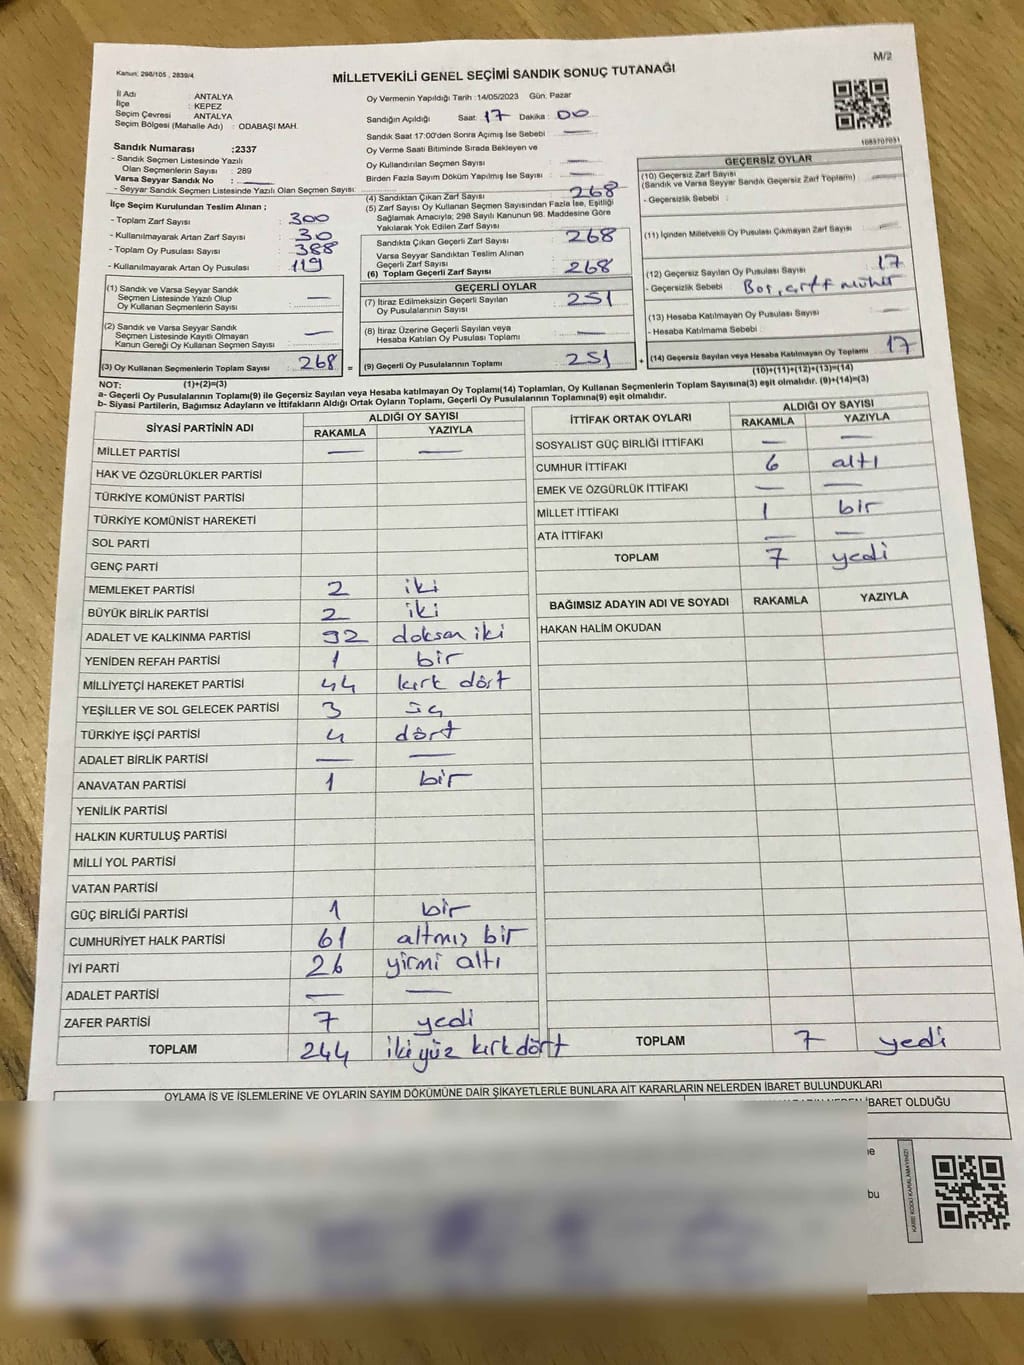 M/2
Kanun: 298/105 , 2839/4
MİLLETVEKİLİ GENEL SEÇİMİ SANDIK SONUÇ TUTANAĞI
İl Adı : ANTALYA
İlçe : KEPEZ
Seçim Çevresi : ANTALYA
Seçim Bölgesi (Mahalle Adı) : ODABAŞI MAH.
Sandık Numarası :2337
- Sandık Seçmen Listesinde Yazılı
Olan Seçmenlerin Sayısı : 289
Varsa Seyyar Sandık No : —
- Seyyar Sandık Seçmen Listesinde Yazılı Olan Seçmen Sayısı:
İlçe Seçim Kurulundan Teslim Alınan ;
- Toplam Zarf Sayısı : 300
- Kullanılmayarak Artan Zarf Sayısı : 30
- Toplam Oy Pusulası Sayısı : 388
- Kullanılmayarak Artan Oy Pusulası : 119
(1) Sandık ve Varsa Seyyar Sandık
Seçmen Listesinde Yazılı Olup
Oy Kullanan Seçmenlerin Sayısı : —
(2) Sandık ve Varsa Seyyar Sandık
Seçmen Listesinde Kayıtlı Olmayan
Kanun Gereği Oy Kullanan Seçmen Sayısı : —
(3) Oy Kullanan Seçmenlerin Toplam Sayısı : 268 =
Oy Vermenin Yapıldığı Tarih :14/05/2023 Gün: Pazar
Sandığın Açıldığı Saat: 17 Dakika : 00
Sandık Saat 17:00'den Sonra Açımış İse Sebebi : —
Oy Verme Saati Bitiminde Sırada Bekleyen ve
Oy Kullandırılan Seçmen Sayısı : —
Birden Fazla Sayım Döküm Yapılmış İse Sayısı : —
(4) Sandıktan Çıkan Zarf Sayısı : 268
(5) Zarf Sayısı Oy Kullanan Seçmen Sayısından Fazla İse, Eşitliği
Sağlamak Amacıyla; 298 Sayılı Kanunun 98. Maddesine Göre
Yakılarak Yok Edilen Zarf Sayısı :
Sandıkta Çıkan Geçerli Zarf Sayısı : 268
Varsa Seyyar Sandıktan Teslim Alınan
Geçerli Zarf Sayısı :
(6) Toplam Geçerli Zarf Sayısı : 268
GEÇERLİ OYLAR
(7) İtiraz Edilmeksizin Geçerli Sayılan
Oy Pusulalarının Sayısı : 251
(8) İtiraz Üzerine Geçerli Sayılan veya
Hesaba Katılan Oy Pusulası Toplamı : —
(9) Geçerli Oy Pusulalarının Toplamı : 251 +
1083707031
GEÇERSİZ OYLAR
(10) Geçersiz Zarf Sayısı : —
(Sandık ve Varsa Seyyar Sandık Geçersiz Zarf Toplamı)
- Geçersizlik Sebebi :
(11) İçinden Milletvekili Oy Pusulası Çıkmayan Zarf Sayısı : —
(12) Geçersiz Sayılan Oy Pusulası Sayısı : 17
- Geçersizlik Sebebi : Boş, çift mühür
(13) Hesaba Katılmayan Oy Pusulası Sayısı : —
- Hesaba Katılmama Sebebi :
(14) Geçersiz Sayılan veya Hesaba Katılmayan Oy Toplamı : 17
(10)+(11)+(12)+(13)=(14)
NOT: (1)+(2)=(3)
a- Geçerli Oy Pusulalarının Toplamı(9) ile Geçersiz Sayılan veya Hesaba katılmayan Oy Toplamı(14) Toplamları, Oy Kullanan Seçmenlerin Toplam Sayısına(3) eşit olmalıdır. (9)+(14)=(3)
b- Siyasi Partilerin, Bağımsız Adayların ve İttifakların Aldığı Ortak Oyların Toplamı, Geçerli Oy Pusulalarının Toplamına(9) eşit olmalıdır.
SİYASİ PARTİNİN ADI ALDIĞI OY SAYISI
RAKAMLA YAZIYLA
MİLLET PARTİSİ — —
HAK VE ÖZGÜRLÜKLER PARTİSİ
TÜRKİYE KOMÜNİST PARTİSİ
TÜRKİYE KOMÜNİST HAREKETİ
SOL PARTİ
GENÇ PARTİ
MEMLEKET PARTİSİ 2 iki
BÜYÜK BİRLİK PARTİSİ 2 iki
ADALET VE KALKINMA PARTİSİ 92 doksan iki
YENİDEN REFAH PARTİSİ 1 bir
MİLLİYETÇİ HAREKET PARTİSİ 44 kırk dört
YEŞİLLER VE SOL GELECEK PARTİSİ 3 üç
TÜRKİYE İŞÇİ PARTİSİ 4 dört
ADALET BİRLİK PARTİSİ — —
ANAVATAN PARTİSİ 1 bir
YENİLİK PARTİSİ
HALKIN KURTULUŞ PARTİSİ
MİLLİ YOL PARTİSİ
VATAN PARTİSİ
GÜÇ BİRLİĞİ PARTİSİ 1 bir
CUMHURİYET HALK PARTİSİ 61 altmış bir
İYİ PARTİ 26 yirmi altı
ADALET PARTİSİ — —
ZAFER PARTİSİ 7 yedi
TOPLAM 244 ikiyüz kırkdört
İTTİFAK ORTAK OYLARI ALDIĞI OY SAYISI
RAKAMLA YAZIYLA
SOSYALIST GÜÇ BİRLİĞİ İTTİFAKI — —
CUMHUR İTTİFAKI 6 altı
EMEK VE ÖZGÜRLÜK İTTİFAKI — —
MİLLET İTTİFAKI 1 bir
ATA İTTİFAKI — —
TOPLAM 7 yedi
BAĞIMSIZ ADAYIN ADI VE SOYADI RAKAMLA YAZIYLA
HAKAN HALIM OKUDAN
TOPLAM 7 yedi
OYLAMA İŞ VE İŞLEMLERİNE VE OYLARIN SAYIM DÖKÜMÜNE DAİR ŞİKAYETLERLE BUNLARA AİT KARARLARIN NELERDEN İBARET BULUNDUKLARI
İBARET OLDUĞU
bu
KARE KODU KARALAMAYINIZ!